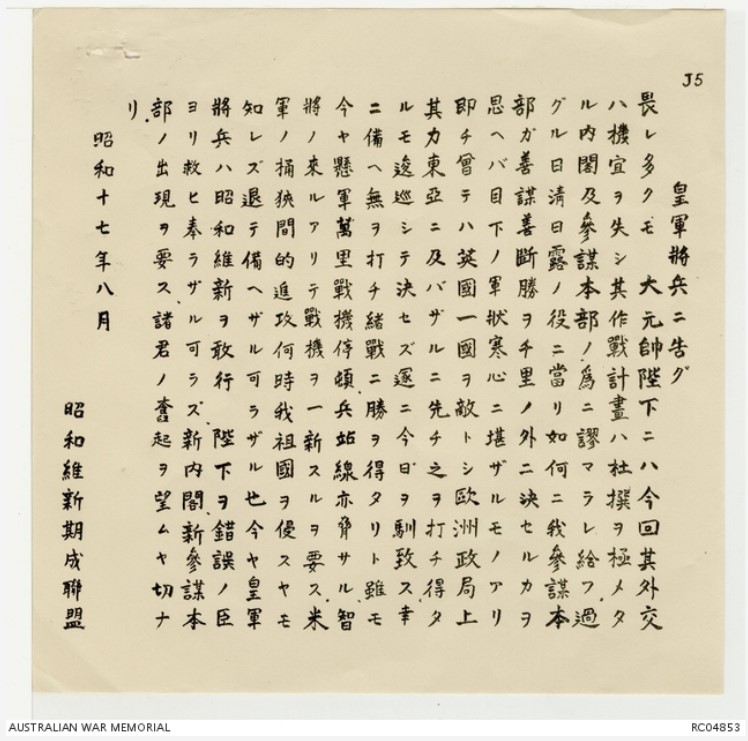 J5
皇軍將兵ニ告グ
畏レ多クモ 大元帥陛下ニハ今回其外交
ハ機宜ヲ失シ其作戰計畫ハ杜撰ヲ極メタ
ル内閣及參謀本部ノ爲ニ謬マラレ給フ、過
グル日清日露ノ役ニ當リ如何ニ我參謀本
部ガ善謀善斷勝ヲ千里ノ外ニ決セルカヲ
思ヘバ目下ノ軍狀寒心ニ堪ザルモノアリ
即チ曾テハ英國一國ヲ敵トシ歐洲政局上
其力東亞ニ及バザルニ先チ之ヲ打チ得タ
ルモ逡巡シテ決セズ遂ニ今日ヲ馴致ス、幸
ニ備ヘ無ヲ打チ緒戰ニ勝ヲ得タリト雖モ
今ヤ懸軍萬里戰機停頓、兵站線亦脅サル、智
將ノ來ルアリテ戰機ヲ一新スルヲ要ス、米
軍ノ桶狹間的進攻何時我祖國ヲ侵スヤモ
知レズ退テ備ヘザル可ラザル也今ヤ皇軍
將兵ハ昭和維新ヲ敢行 陛下ヲ錯誤ノ臣
ヨリ救ヒ奉ラザル可ラズ、新内閣、新參謀本
部ノ出現ヲ要ス、諸君ノ奮起ヲ望ムヤ切ナ
リ、
昭和十七年八月
昭和維新期成聯盟
AUSTRALIAN WAR MEMORIAL
RC04853